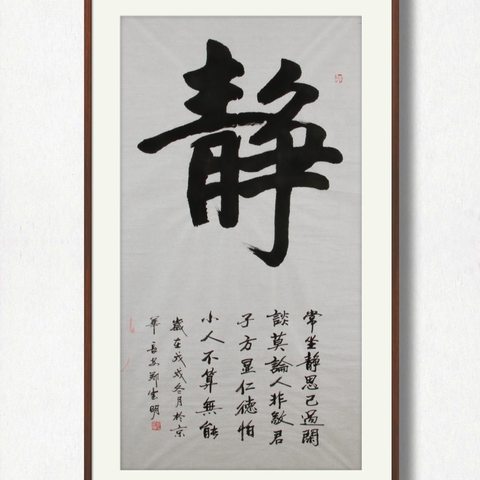 靜
常坐靜思己過閑
談莫論人非敬君
子方显仁德怕
小人不算無能
歲在戊戌冬月於京
華鄭明